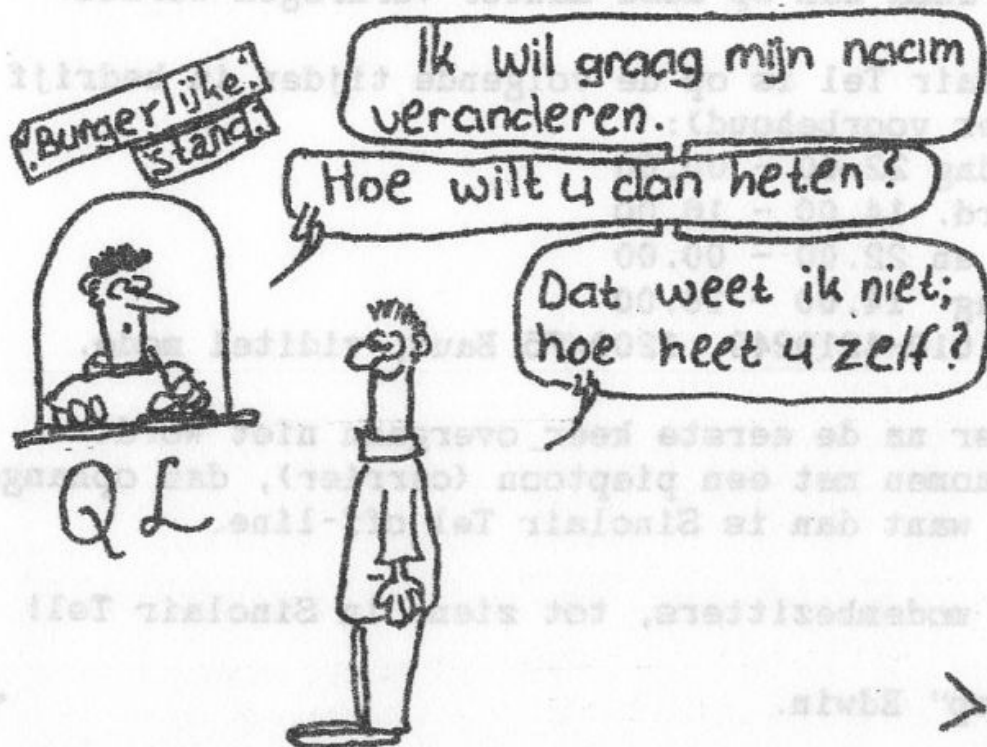 Burgerlijke.
stand.
Ik wil graag mijn naam
veranderen.
Hoe wilt u dan heten?
Dat weet ik niet;
hoe heet u zelf?
QL